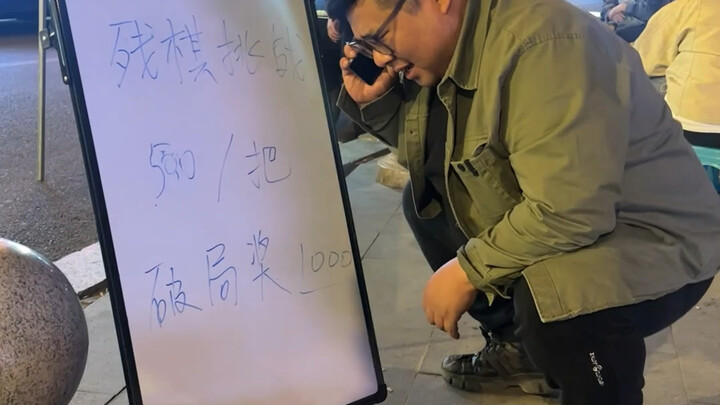 残棋挑战
500/把
破局奖1000